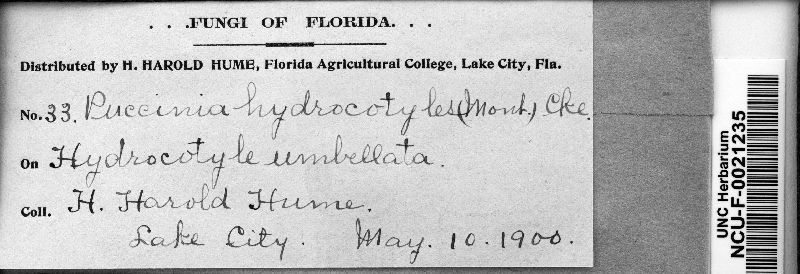 . . .FUNGI OF FLORIDA. . .
Distributed by H. HAROLD HUME, Florida Agricultural College, Lake City, Fla.
No. 33. Puccinia hydrocotyles (Mont.) Cke.
On Hydrocotyle umbellata.
Coll. H. Harold Hume.
Lake City. May. 10. 1900.
UNC Herbarium
NCU-F-0021235